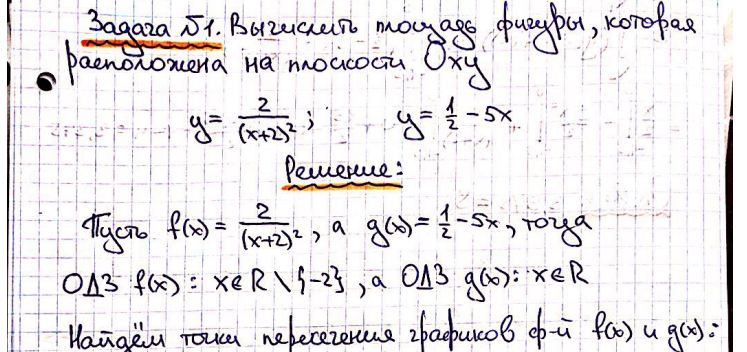 Задача №1. Вычислить площадь фигуры, которая
расположена на плоскости Oxy
y = 2/(x+2)²; y = 1/2 - 5x
Решение:
Пусть f(x) = 2/(x+2)², а g(x) = 1/2 - 5x, тогда
ОДЗ f(x): x∈R\{-2}, а ОДЗ g(x): x∈R
Найдём точки пересечения графиков ф-й f(x) и g(x):